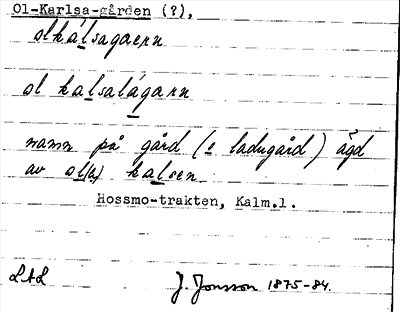 Ol-Karlsa-gården (?),
olkálsagaern
ol kalsalágarn
namn på gård (o ladugård) ägd
av ol(a) kalsen
Hossmo-trakten, Kalm.l.
LAL
J. Jonsson 1875-84.